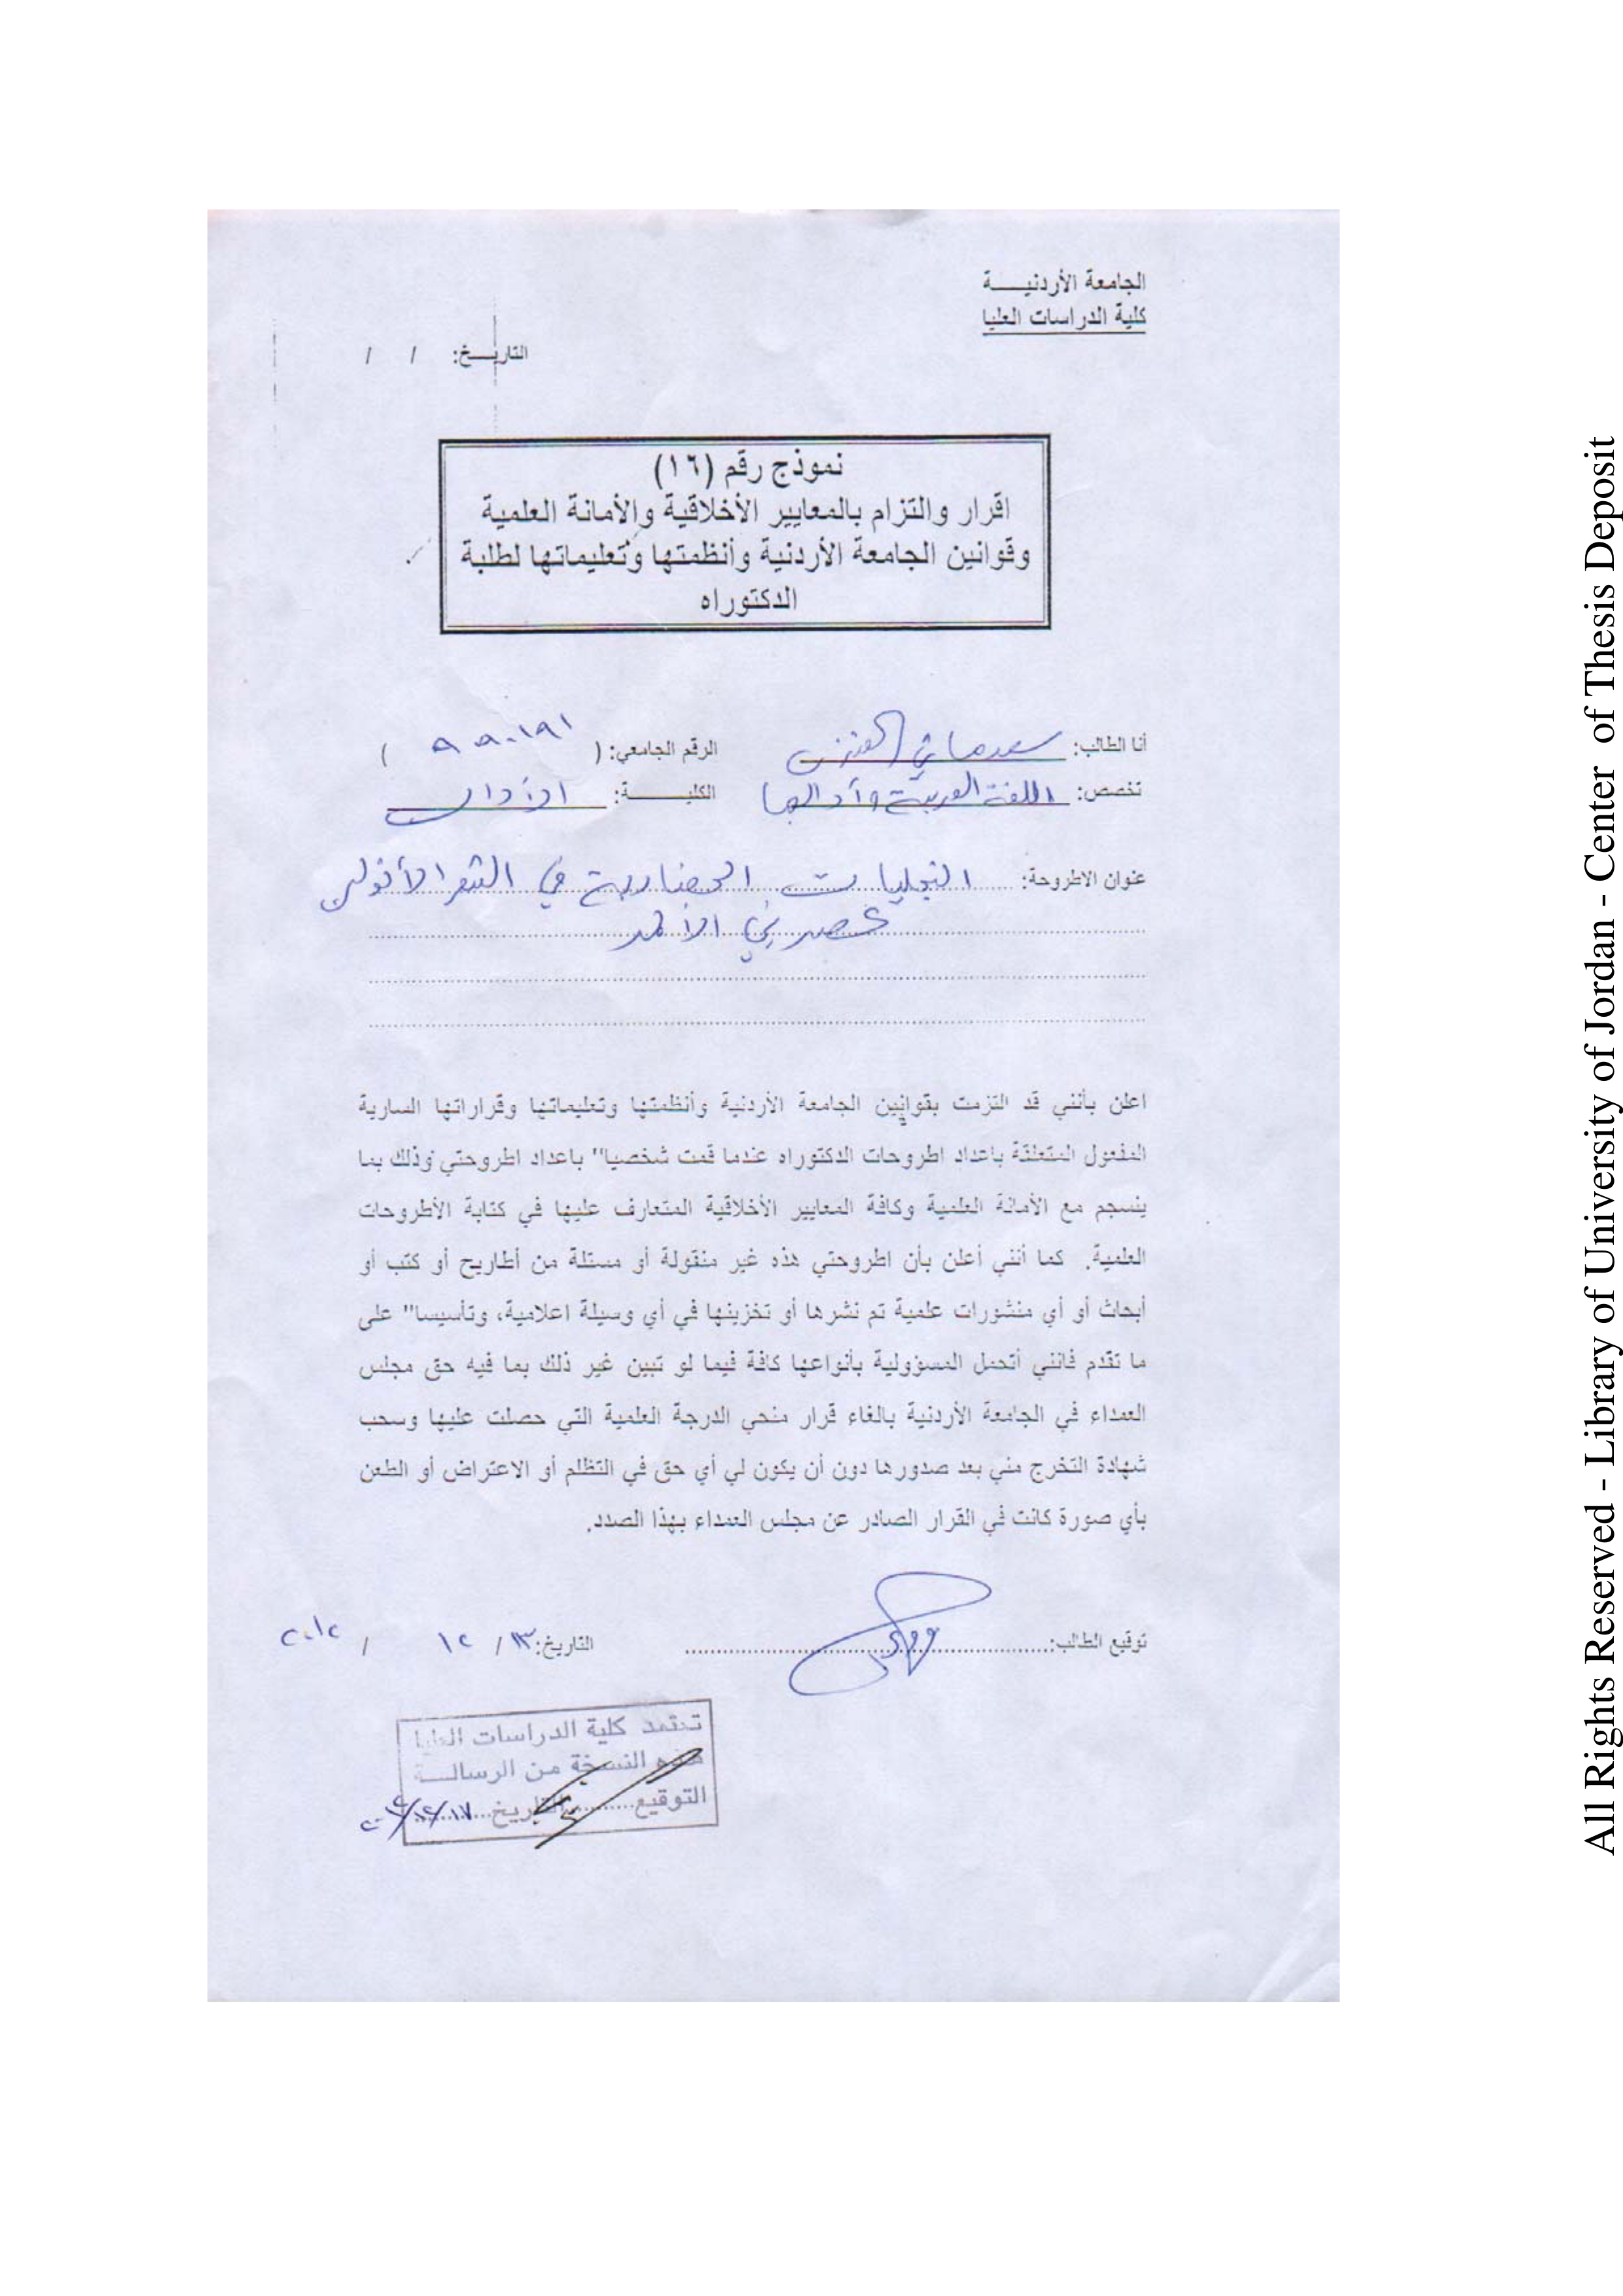 الجامعة الأردنيـــــة
كلية الدراسات العليا
التاريـــخ: / /
نموذج رقم (١٦)
اقرار والتزام بالمعايير الأخلاقية والأمانة العلمية
وقوانين الجامعة الأردنية وأنظمتها وتعليماتها لطلبة
الدكتوراه
أنا الطالب: سعد العنزي الرقم الجامعي: ( )
تخصص: اللغة العربية وآدابها الكليـــــــة: الآداب
عنوان الاطروحة: التجليات الحضارية في الشعر الأندلسي
عصر بني الأحمر
اعلن بأنني قد التزمت بقوانين الجامعة الأردنية وأنظمتها وتعليماتها وقراراتها السارية
المفعول المتعلقة باعداد اطروحات الدكتوراه عندما قمت شخصيا" باعداد اطروحتي وذلك بما
ينسجم مع الأمانة العلمية وكافة المعايير الأخلاقية المتعارف عليها في كتابة الأطروحات
العلمية. كما أنني أعلن بأن اطروحتي هذه غير منقولة أو مستلة من أطاريح أو كتب أو
أبحاث أو أي منشورات علمية تم نشرها أو تخزينها في أي وسيلة اعلامية، وتأسيسا" على
ما تقدم فانني أتحمل المسؤولية بأنواعها كافة فيما لو تبين غير ذلك بما فيه حق مجلس
العمداء في الجامعة الأردنية بالغاء قرار منحي الدرجة العلمية التي حصلت عليها وسحب
شهادة التخرج مني بعد صدورها دون أن يكون لي أي حق في التظلم أو الاعتراض أو الطعن
بأي صورة كانت في القرار الصادر عن مجلس العمداء بهذا الصدد.
توقيع الطالب: التاريخ: ١٣ / ١٢ / ٢٠١٢
تعتمد كلية الدراسات العليا
هذه النسخة من الرسالـــة
التوقيع.........التاريخ.........
All Rights Reserved - Library of University of Jordan - Center of Thesis Deposit